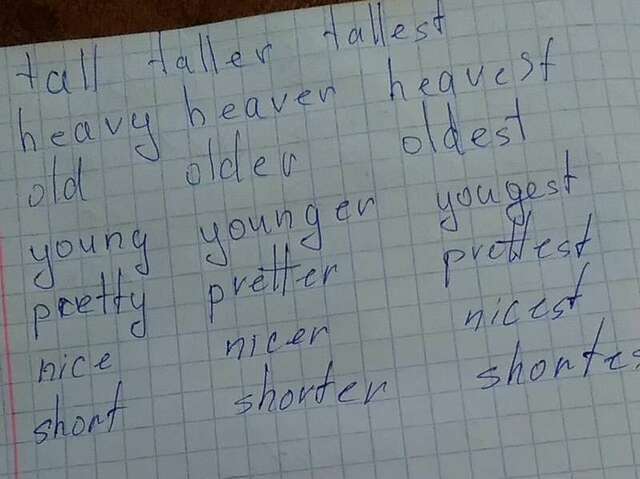 tall taller tallest
heavy heaver heavest
old older oldest
young younger yougest
pretty pretter prettest
nice nicer nicest
short shorter shortes